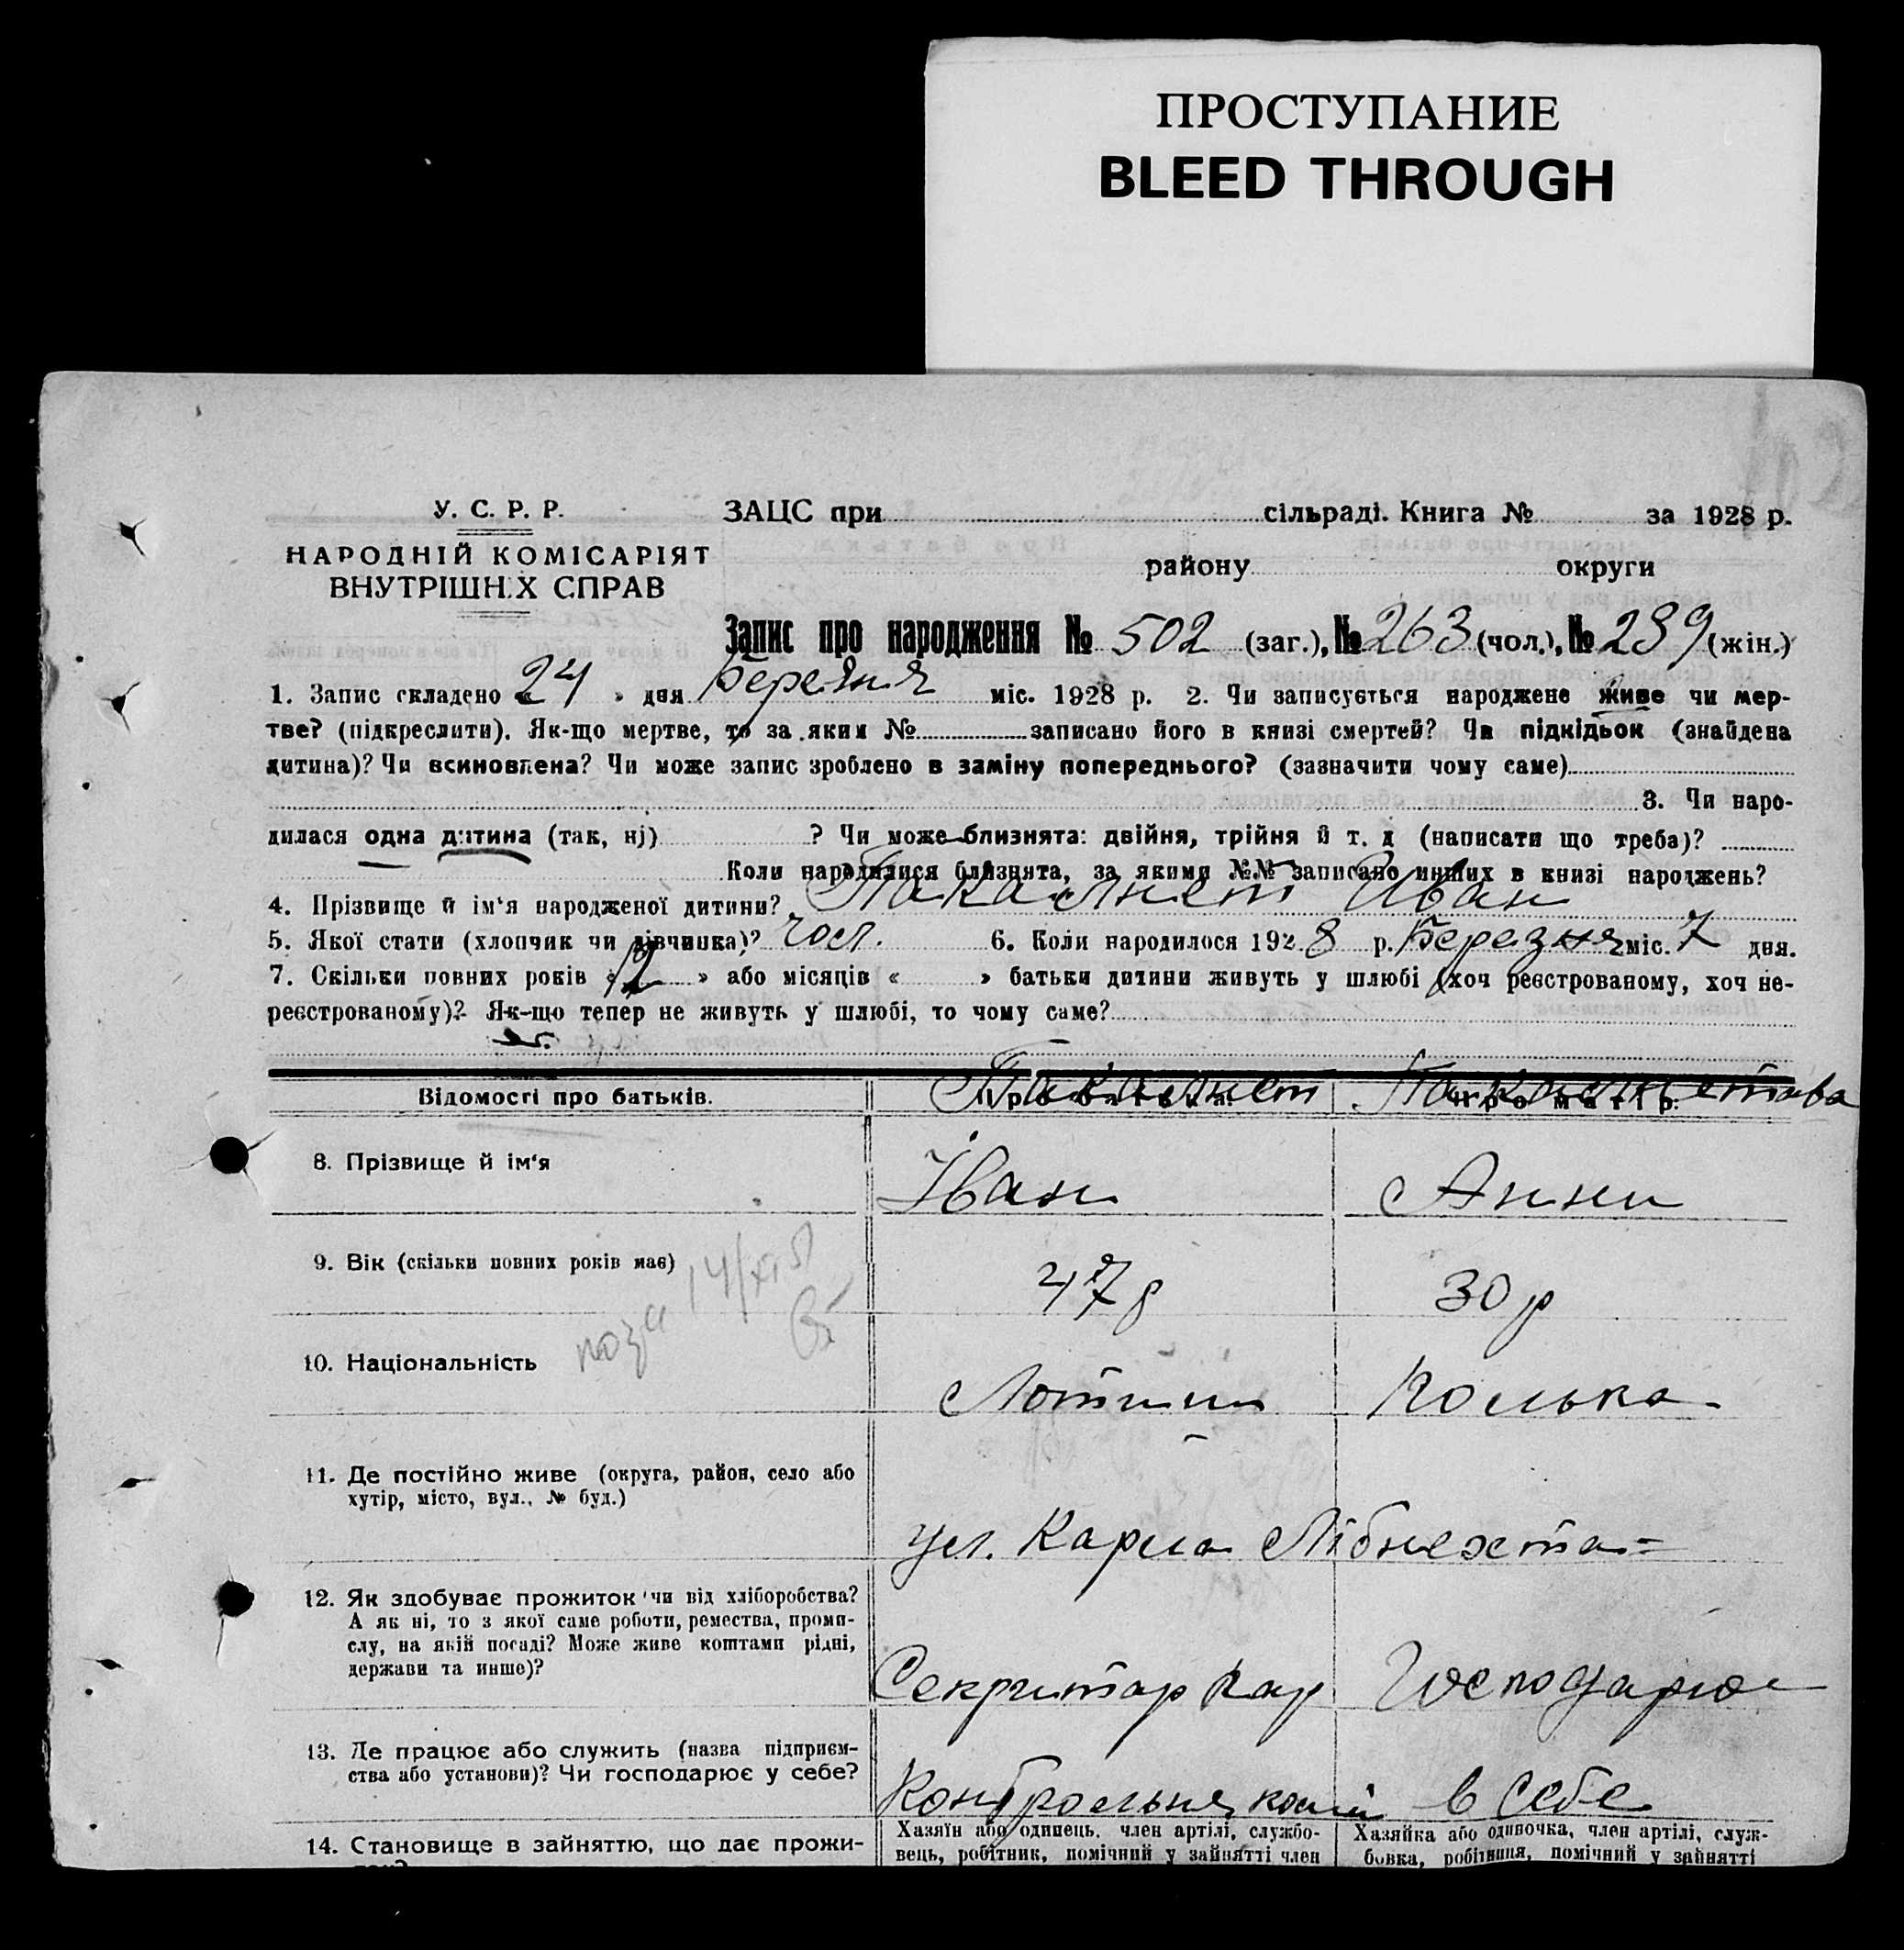 ПРОСТУПАНИЕ
BLEED THROUGH
У. С. Р. Р.
НАРОДНІЙ КОМІСАРІЯТ
ВНУТРІШН.Х СПРАВ
ЗАЦС при сільраді. Книга № за 1928 р.
району округи
Запис про народження № 502 (заг.), № 263 (чол.), № 239 (жін.)
1. Запис складено « 24 » дня Березня міс. 1928 р. 2. Чи записується народжене живе чи мер-
тве? (підкреслити). Як-що мертве, то за яким № записано його в книзі смертей? Чи підкідьок (знайдена
дитина)? Чи всиновлена? Чи може запис зроблено в заміну попереднього? (зазначити чому саме)
3. Чи наро-
дилася одна дитина (так, ні) ? Чи може близнята: двійня, трійня й т. д (написати що треба)?
Коли народилися близнята, за якими №№ записано инших в книзі народжень?
4. Прізвище й ім‘я народженої дитини? Иван
5. Якої стати (хлопчик чи дівчинка)? чол. 6. Коли народилося 192 8 р. Березня міс. 7 дня.
7. Скільки повних років « 12 » або місяців « » батьки дитини живуть у шлюбі (хоч реєстрованому, хоч не-
реєстрованому)? Як-що тепер не живуть у шлюбі, то чому саме?
Відомості про батьків. Про батька. Про матір.
8. Прізвище й ім‘я Іван Анни
9. Вік (скільки повних років має) 47 р 30 р
10. Національність Полька
11. Де постійно живе (округа, район, село або
хутір, місто, вул., № буд.)
ул. Карла Лібнехта
12. Як здобуває прожиток чи від хліборобства?
А як ні, то з якої саме роботи, ремества, проми-
слу, на якій посаді? Може живе коштами рідні,
держави та инше)?
Секритар Господарює
13. Де працює або служить (назва підприєм-
ства або установи)? Чи господарює у себе?
Контрольня в себе
14. Становище в зайняттю, що дає прожи- Хазяїн або одинець, член артілі, службо- Хазяйка або одиночка, член артілі, служ-
вець, робітник, помічний у зайнятті член бовка, робітниця, помічний у зайнятті